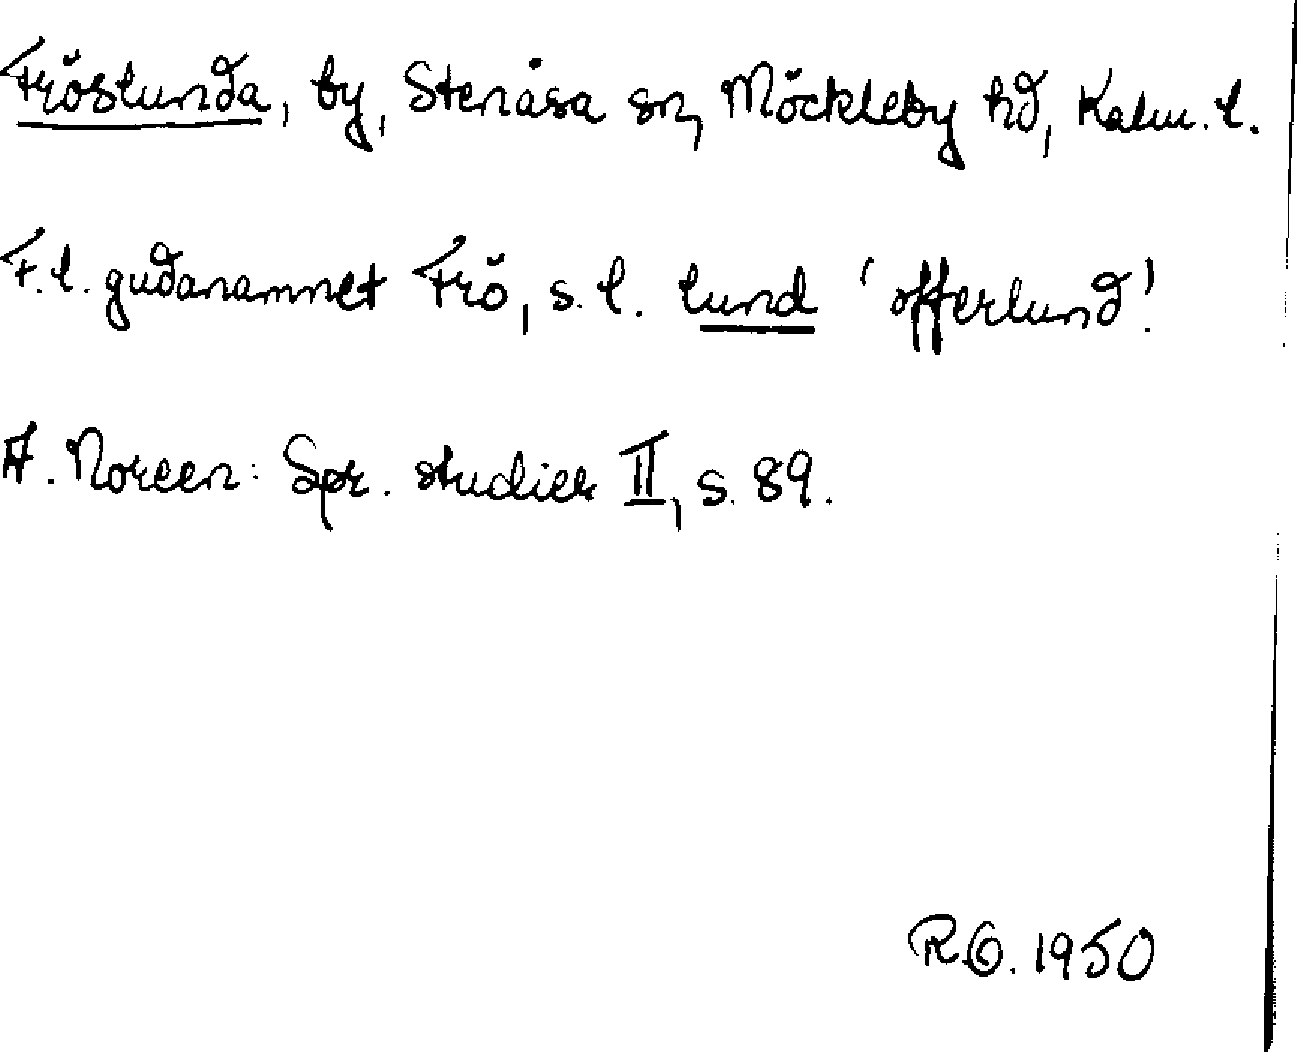 Fröslunda, by, Stenåsa sn, Möckleby hd, Kalm. l.
F.l. gudanamnet Frö, s.l. lund 'offerlund'.
A. Noreen: Spr. studier II, s. 89.
R.O. 1950